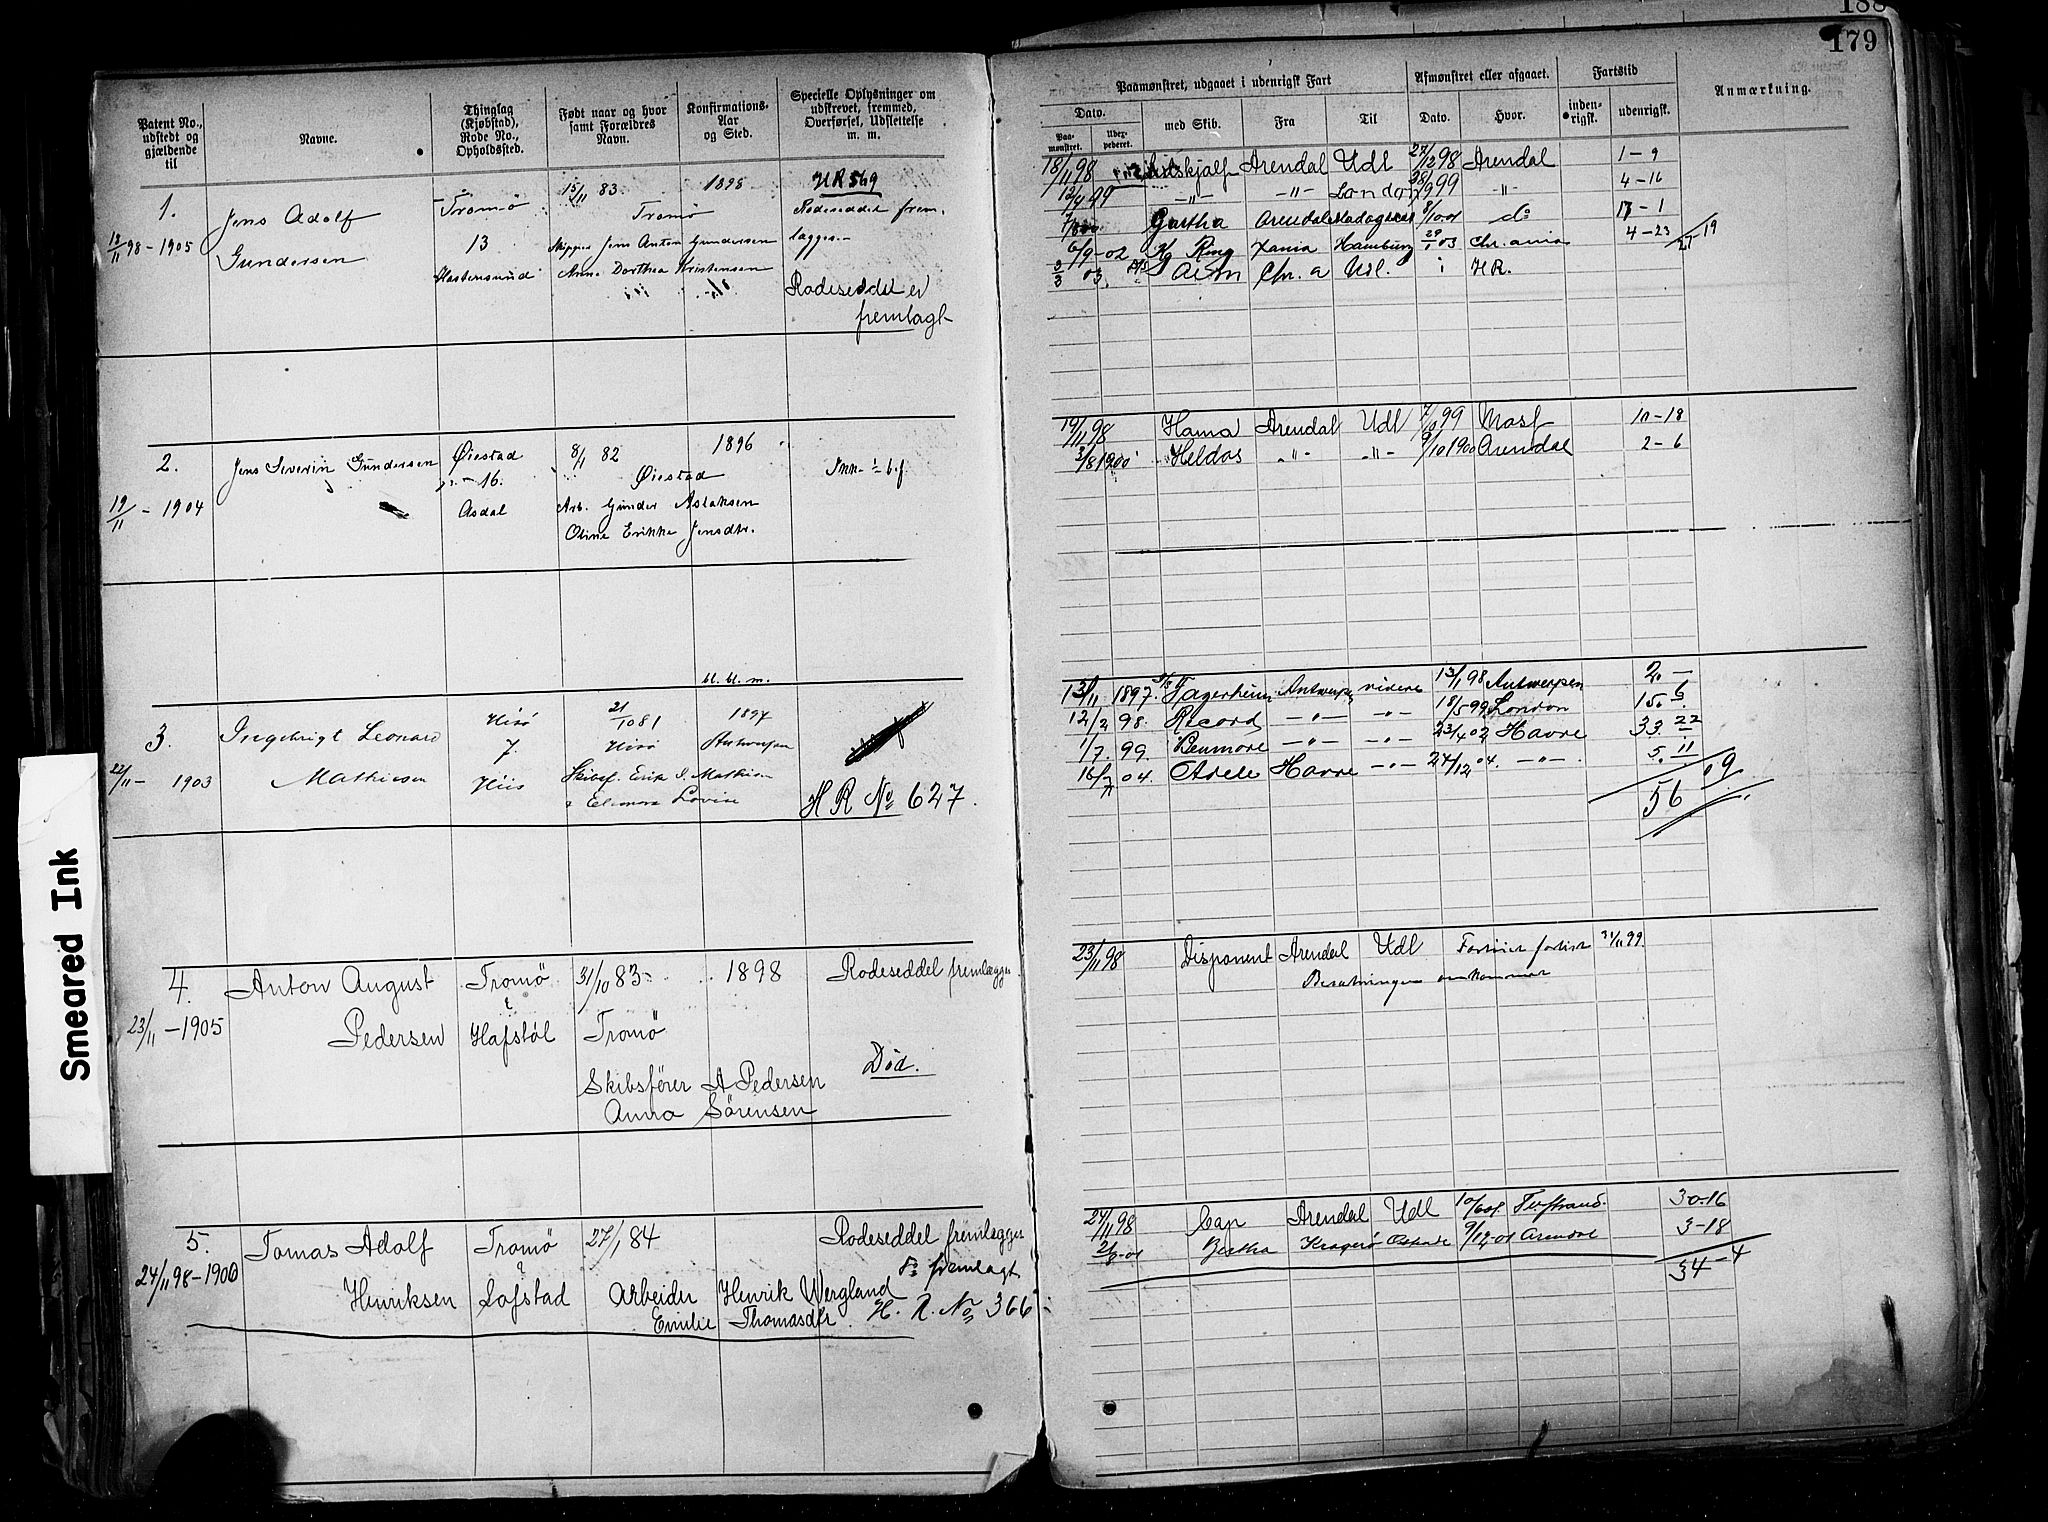 188
179
Patent No., udstedt og gjældende til
Navne.
Thinglag (Kjøbstad), Rode No., Opholdssted.
Født naar og hvor samt Forældres Navn.
Konfirmations- Aar og Sted.
Specielle Oplysninger om udskrevet, fremmed, Overførsel, Udslettelse m. m.
Paamønstret, udgaaet i udenrigsk Fart
Afmønstret eller afgaaet.
Fartstid
Anmærkning.
Dato.
Paa- mønstret.
med Skib.
Fra
Til
Dato.
Hvor.
inden- rigsk.
udenrigsk.
1.
18/11 98 - 1905
Jens Adolf
Gundersen
Tromø
13
15/11 83
Tromø
Skipper Jens Anton Gundersen
Anne Dorthea Kristensen
1898
HR 569
Rodeseddel frem-
lægges.
Rodeseddel er
fremlagt
18/11 98 Arendal Udl 27/12 98 Arendal 1-9
12/4 99 -"- -"- London -"- 4-16
Gurtha
6/9-02 Kg Ring Xania Hamburg 29/1 03 Chr.ania 4-23
3/3 03 Chr.a Udl. HR.
2.
19/11 - 1904
Jens Severin Gundersen
Øiestad
16.
Asdal
8/1 82
Øiestad
Arb. Gunder Aslaksen
Oline Erikke Jensdtr.
1896
19/11 98 Hama Arendal Udl 7/10 99 Mosf 10-18
3/8 1900 Heldos -"- -"- 9/10 1900 Arendal 2-6
3.
22/11 - 1903
Ingebrigt Leonard
Mathiesen
Hisø
7.
Hiis
21/10 81
Hisø
Skibsf. Erik J. Mathisen
& Elenora Lovise
bl. bl. m.
1897
Antwerpen
HR No 627.
13/11 1897. Fagerheim Antwerpen videre 13/1 98 Antwerpen 2. -
12/2 98. Record -"- -"- 18/5 99 London 15. 6
1/7. 99. Benmore -"- -"- 23/4 02 Havre 33. 22
16/7 04. Adele Havre -"- 27/12 04. -"- 5. 11
56 09
4.
23/11 - 1905
Anton August
Pedersen
Tromø
Hafstøl
31/10 83
Tromø
Skibsfører A Pedersen
Anna Sørensen
1898
Rodeseddel fremlægges
Død.
23/11 98 Disponent Arendal Udl 99
Besætningen omkommet
5.
24/11 98 - 1906
Tomas Adolf
Henriksen
Tromø
Løfstad
27/1 84
Arbeider Henrik Wergland
Emilie Thomasdtr.
Rodeseddel fremlægges
fremlagt
H. R. No 366
24/11 98 Cap Arendal Udl 30-16
Bertha Kragerø 9/12-01 Arendal 3-18
34-4
Smeared Ink